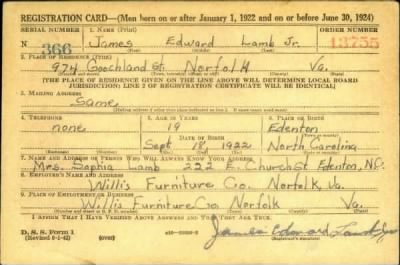 REGISTRATION CARD—(Men born on or after January 1, 1922 and on or before June 30, 1924)
SERIAL NUMBER 1. NAME (Print) ORDER NUMBER
N 366 James Edward Lamb Jr. 13755
(First) (Middle) (Last)
2. PLACE OF RESIDENCE (Print)
974 Goochland St. Norfolk Va.
(Number and street) (Town, township, village, or city) (County) (State)
[THE PLACE OF RESIDENCE GIVEN ON THE LINE ABOVE WILL DETERMINE LOCAL BOARD
JURISDICTION; LINE 2 OF REGISTRATION CERTIFICATE WILL BE IDENTICAL]
3. MAILING ADDRESS
Same
4. TELEPHONE 5. AGE IN YEARS 6. PLACE OF BIRTH
none 19 Edenton
DATE OF BIRTH
Sept 18, 1922 North Carolina
7. NAME AND ADDRESS OF PERSON WHO WILL ALWAYS KNOW YOUR ADDRESS
Mrs. Sophia Lamb 222 E. Church St Edenton, N.C.
8. EMPLOYER'S NAME AND ADDRESS
Willis Furniture Co. Norfolk, Va.
9. PLACE OF EMPLOYMENT OR BUSINESS
Willis Furniture Co. Norfolk Va.
(Number and street or R. F. D. number) (Town) (County) (State)
I AFFIRM THAT I HAVE VERIFIED ABOVE ANSWERS AND THAT THEY ARE TRUE.
D. S. S. Form 1
(over)
James Edward Lamb Jr
(Registrant's signature)